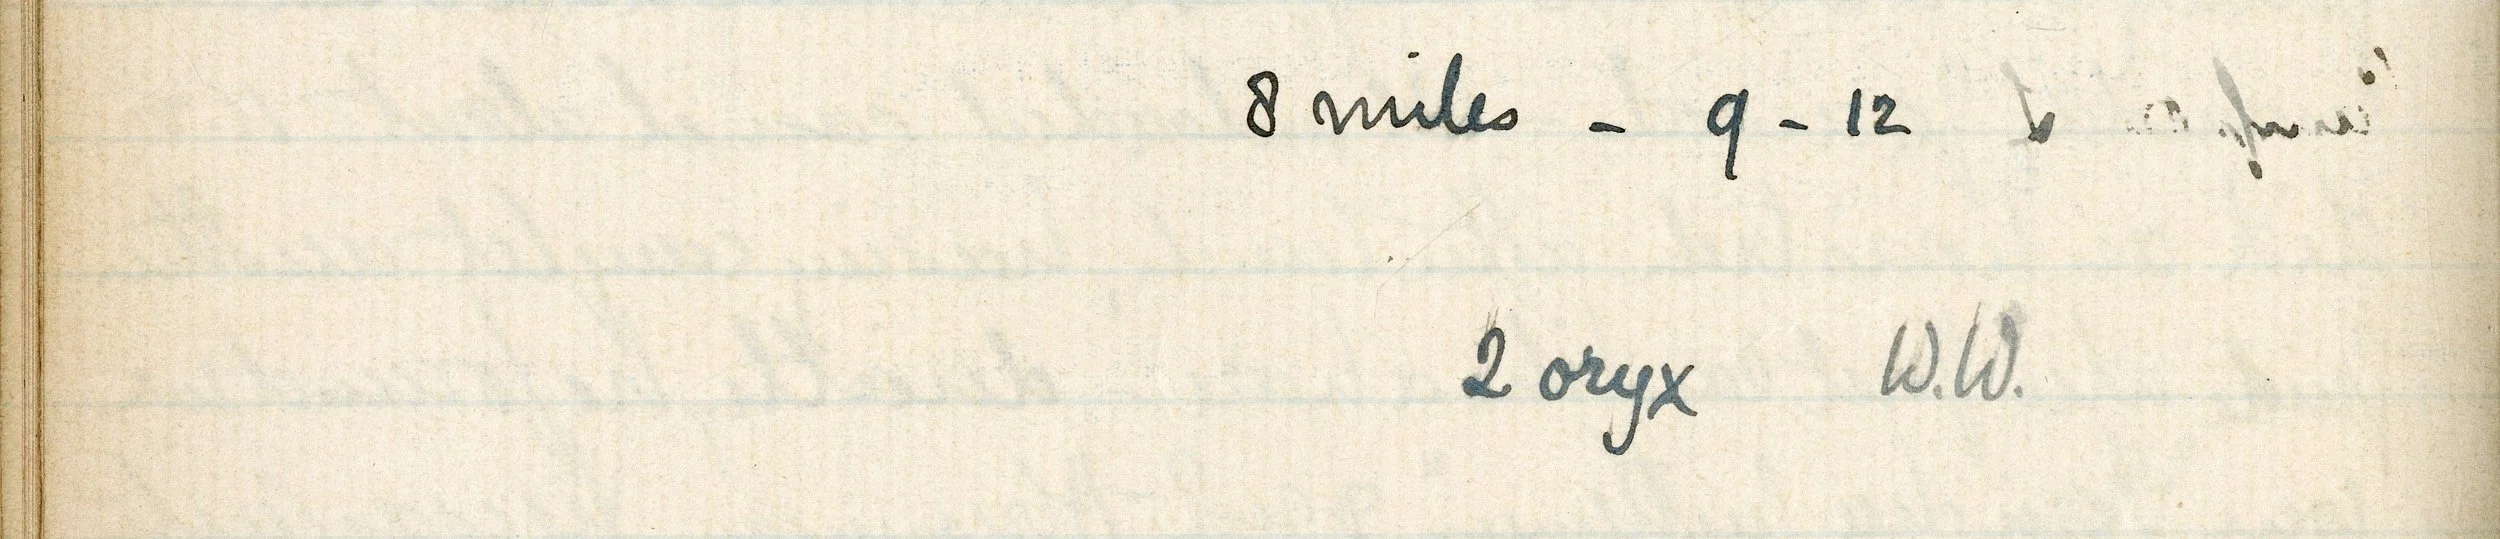 8 miles - 9 - 12
2 oryx W.W.